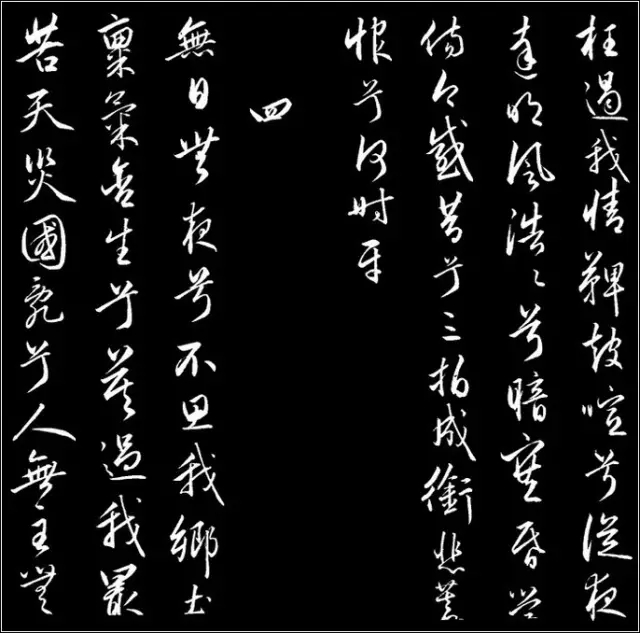 枉遏我情鞞鼓喧兮從夜
達明風浩々兮暗塞昏營
傷今感昔兮三拍成銜悲蓄
恨兮何時平
四
無日無夜兮不思我鄉土
稟氣含生兮莫過我最
苦天災國亂兮人無主